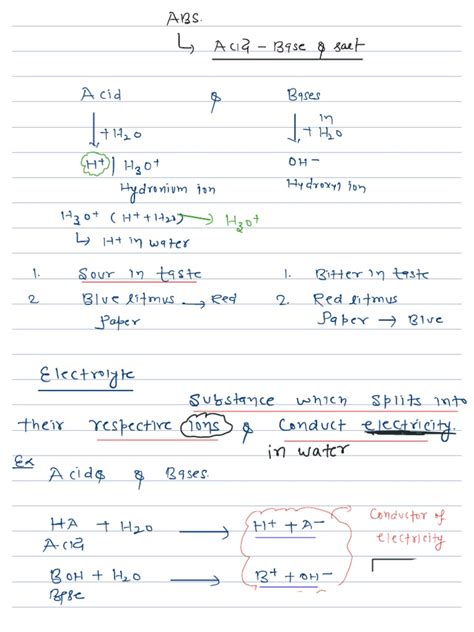 ABS.
↳ Acid - Base & salt
Acid & Bases
↓ + H2O ↓ in + H2O
H+ | H3O+ OH-
Hydronium ion Hydroxyl ion
H3O+ (H+ + H2O) → H3O+
↳ H+ in water
1. Sour in taste 1. Bitter in taste
2 Blue litmus → Red 2. Red litmus
Paper Paper → Blue
Electrolyte
Substance which splits into
their respective ions & Conduct electricity.
in water
Ex
Acids & Bases.
HA + H2O → H+ + A- Conductor of
Acid electricity
BOH + H2O → B+ + OH-
Base